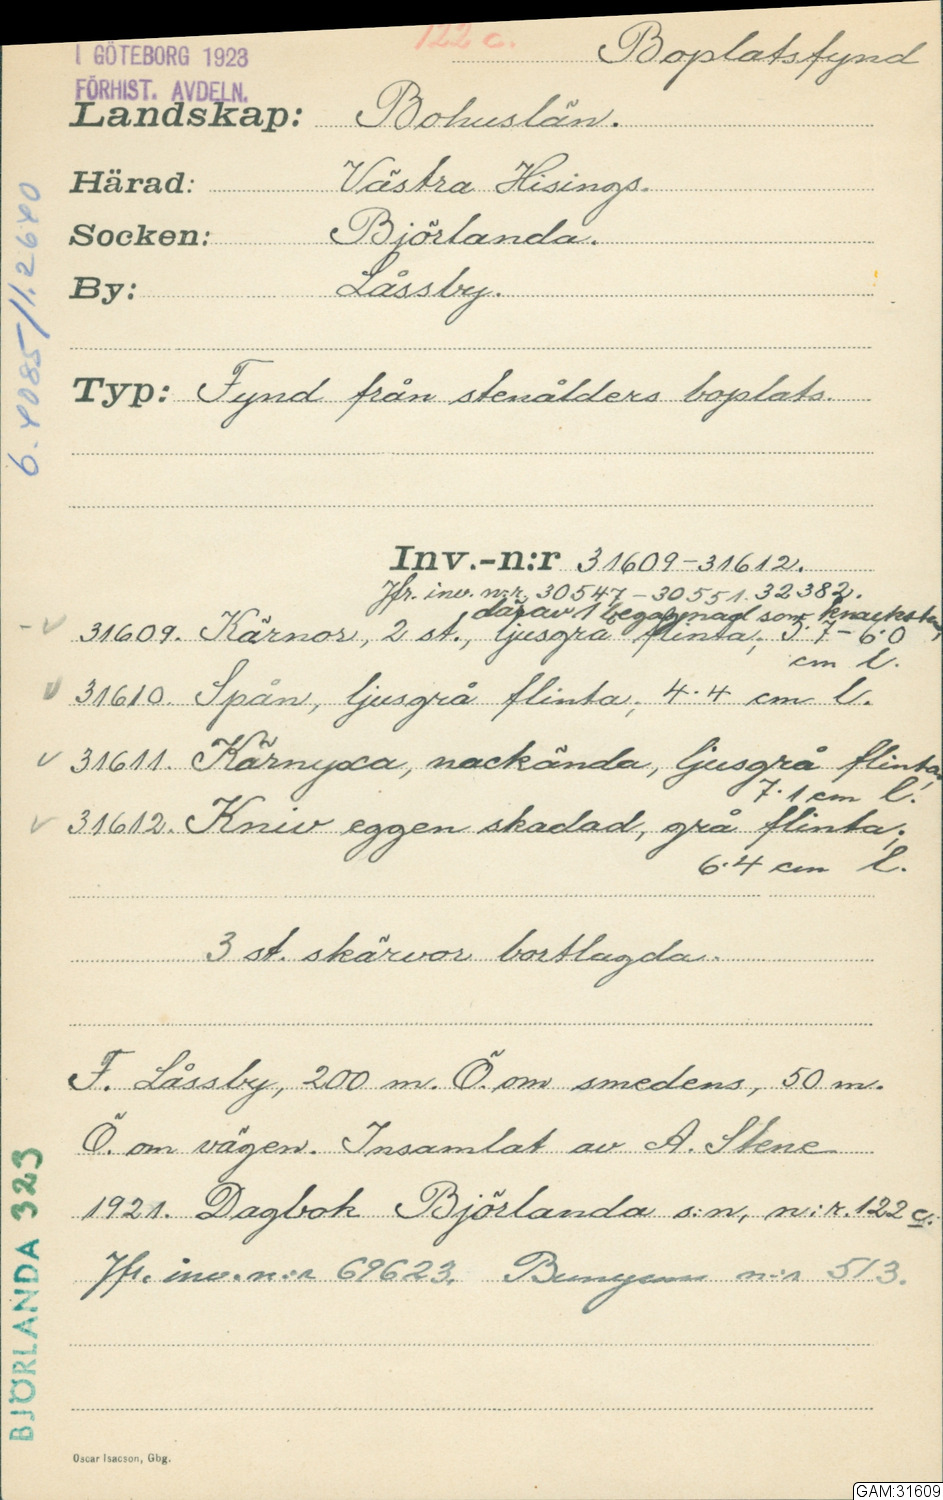 122 c.
Boplatsfynd
I GÖTEBORG 1923
FÖRHIST. AVDELN.
Landskap: Bohuslän.
Härad: Västra Hisings.
Socken: Björlanda.
By: Låssby.
Typ: Fynd från stenålders boplats.
Inv.-n:r 31609-31612.
Jfr. inv. n:r. 30547-30551. 32382.
därav 1 begagnad som knacksten,
31609. Kärnor, 2 st., ljusgrå flinta; 5.7-6.0
cm l.
31610. Spån, ljusgrå flinta; 4.4 cm l.
31611. Kärnyxa, nackända, ljusgrå flinta;
7.1 cm l.
31612. Kniv eggen skadad, grå flinta;
6.4 cm l.
3 st. skärvor bortlagda.
F. Låssby, 200 m. Ö. om smedens, 50 m.
Ö. om vägen. Insamlat av A. Stene
1921. Dagbok Björlanda s:n, n:r. 122 c.
Jfr. inv. n:r 69623. n:r 513.
BJÖRLANDA 323
Oscar Isacson, Gbg.
GAM:31609